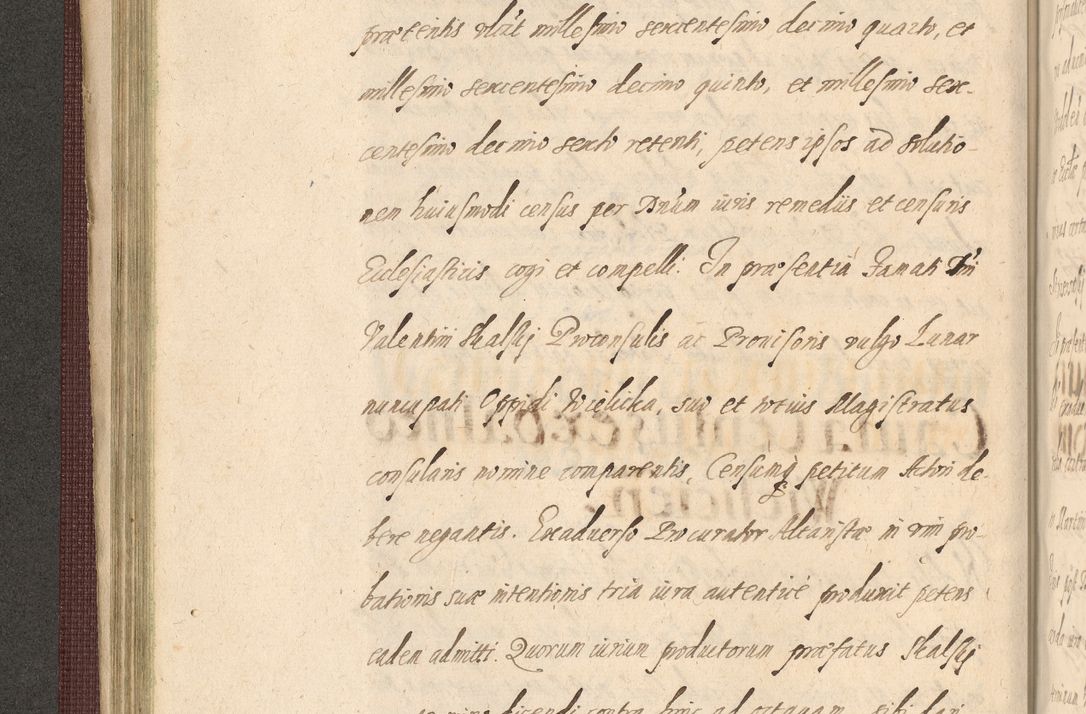 prætentis vlt millesimo sexcentesimo decimo quarto, et
millesimo sexcentesimo decimo quinto, et millesimo sex-
centesimo decimo sexto retenti, petens ipsos ad solutio
nem huiusmodi census per Dnum iuris remediis et censuris
Ecclesiasticis cogi et compelli. In præsentia Famati Dni
Valentini Skalskj Proconsulis ac Prouisoris vulgo Lunar
nuncupati Oppidi Wielicka, suo et totius Magistratus
consularis nomine comparentis, Censumq petitum solvi de-
bere negantis. Exaduerso Procurator Altaristæ in vim pro-
bationis suæ intentionis tria iura autenticè produxit petens
eadem admitti. Quorum iurium productorum præfatus Skalskj
dicendi contra hinc ad octauam sibi dari